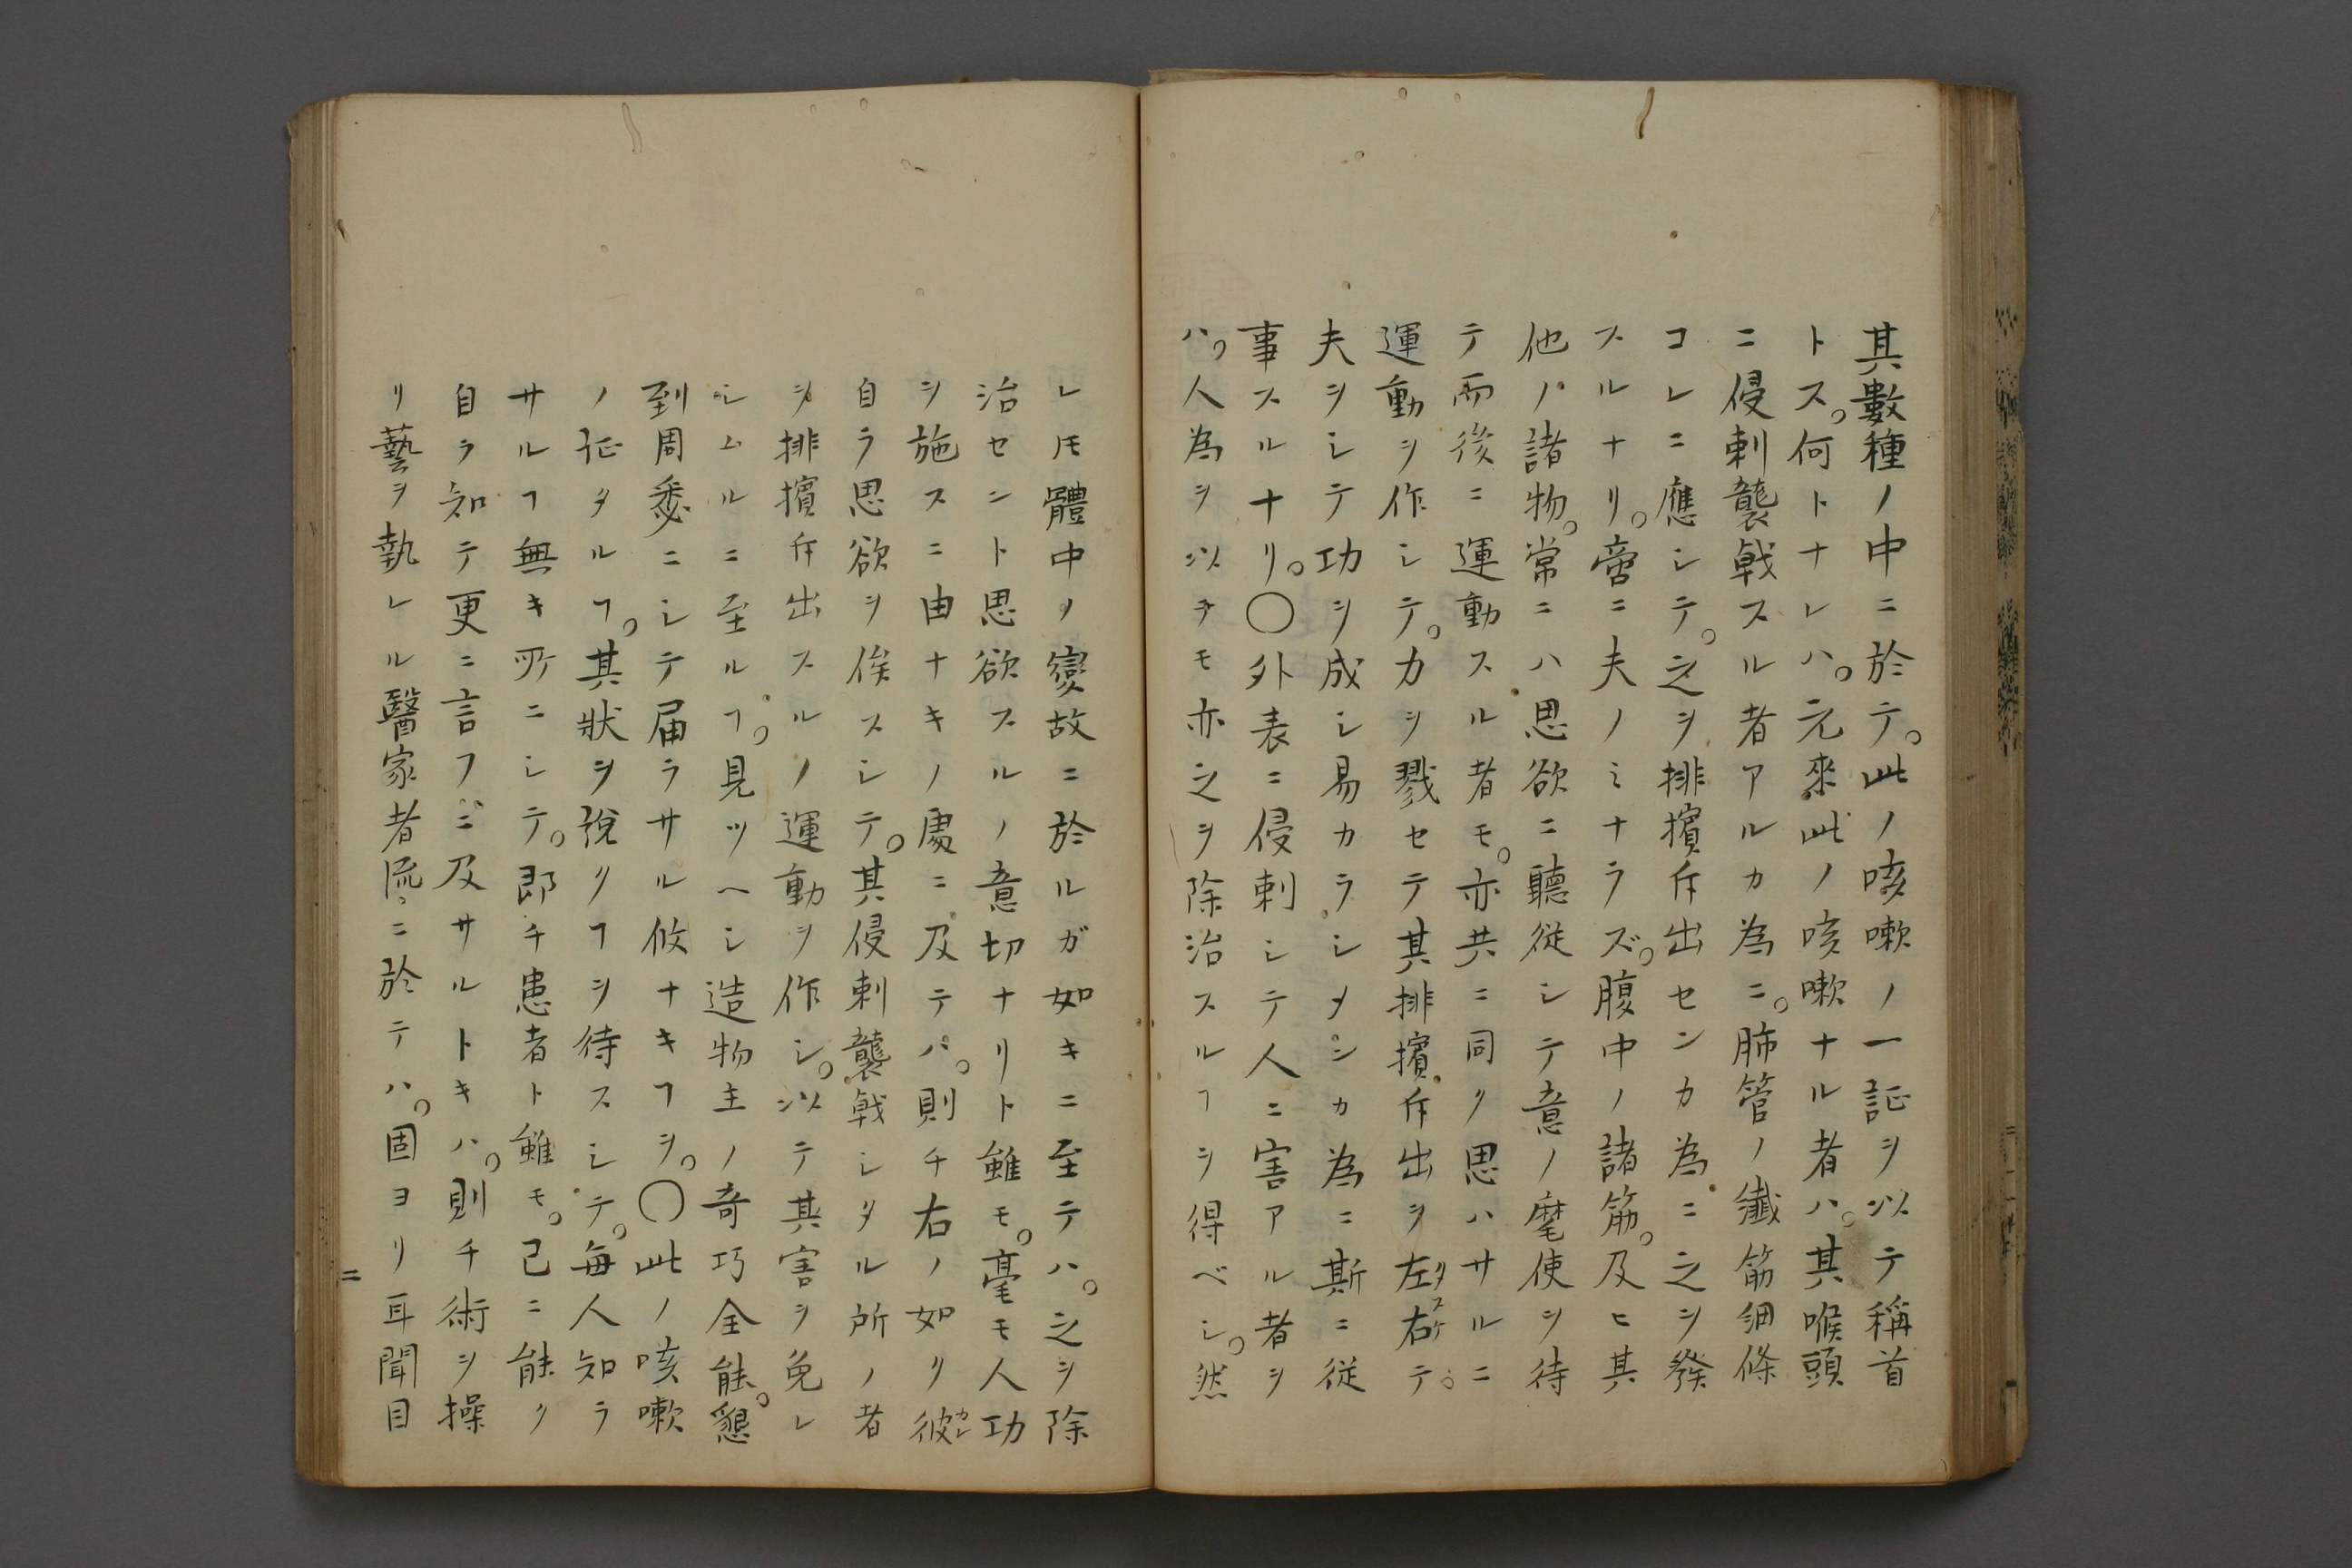 其數種ノ中ニ於テ。此ノ咳嗽ノ一証ヲ以テ稱首
トス。何トナレハ。元來此ノ咳嗽ナル者ハ。其喉頭
ニ侵刺襲戟スル者アルカ為ニ。肺管ノ纖筋細條
コレニ應シテ。之ヲ排擯斥出センカ為ニ之ヲ發
スルナリ。啻ニ夫ノミナラズ。腹中ノ諸筋。及ヒ其
他ノ諸物。常ニハ思欲ニ聽從シテ意ノ麾使ヲ待
テ而後ニ運動スル者モ。亦共ニ同ク思ハサルニ
運動ヲ作シテ。力ヲ戮セテ其排擯斥出ヲ左右タスケテ。
夫ヲシテ功ヲ成シ易カラシメンカ為ニ斯ニ従
事スルナリ。〇外表ニ侵刺シテ人ニ害アル者ヲ
ハ。人為ヲ以テモ亦之ヲ除治スルヿヲ得ベシ。然
レㇳモ體中ノ變故ニ於ルガ如キニ至テハ。之ヲ除
治セント思欲スルノ意切ナリト雖モ。毫モ人功
ヲ施スニ由ナキノ處ニ及テハ。則チ右ノ如ク彼カレ
自ラ思欲ヲ俟スシテ。其侵刺襲戟シタル所ノ者
ヲ排擯斥出スルノ運動ヲ作シ。以テ其害ヲ免レ
シムルニ至ルヿ。見ツヘシ造物主ノ奇巧全能。懇
到周悉ニシテ届ラサル攸ナキヿヲ。〇此ノ咳嗽
ノ証タルヿ。其狀ヲ說クヿヲ待スシテ。毎人知ラ
サルヿ無キ所ニシテ。即チ患者ト雖モ。已ニ能ク
自ラ知テ更ニ言フニ及サルトキハ。則チ術ヲ操
リ藝ヲ執レル醫家者流ニ於テハ。固ヨリ耳聞目
二